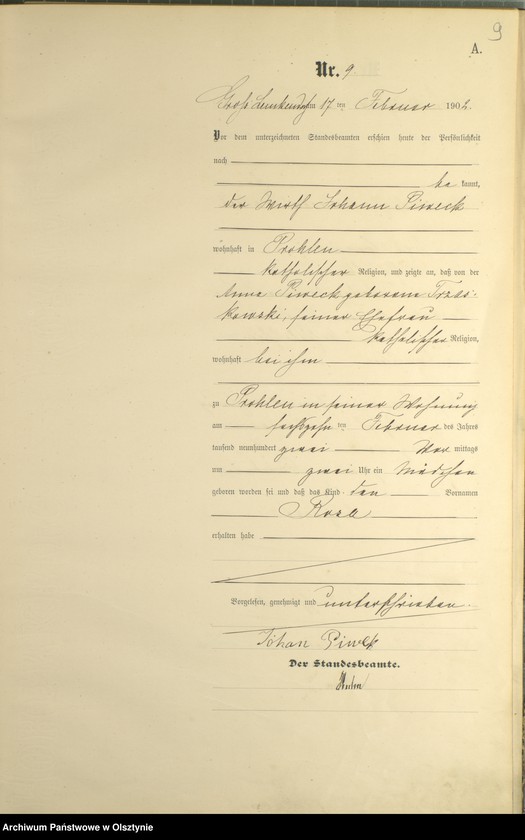 9
A.
Nr. 9
Groß Lemkendorf am 17 ten Februar 1902.
Vor dem unterzeichneten Standesbeamten erschien heute der Persönlichkeit
nach
be kannt,
der Wirth Johann Piweck
wohnhaft in Prohlen
katholischer Religion, und zeigte an, daß von der
Anna Piweck geborenen Trzas-
kowski, seiner Ehefrau
katholischer Religion,
wohnhaft bei ihm
zu Prohlen in seiner Wohnung
am sechszehn ten Februar des Jahres
tausend neunhundert zwei Vor mittags
um zwei Uhr ein Mädchen
geboren worden sei und daß das Kind den Vornamen
Rosa
erhalten habe
Vorgelesen, genehmigt und unterschrieben.
Johan Piwek
Der Standesbeamte.
Archiwum Państwowe w Olsztynie